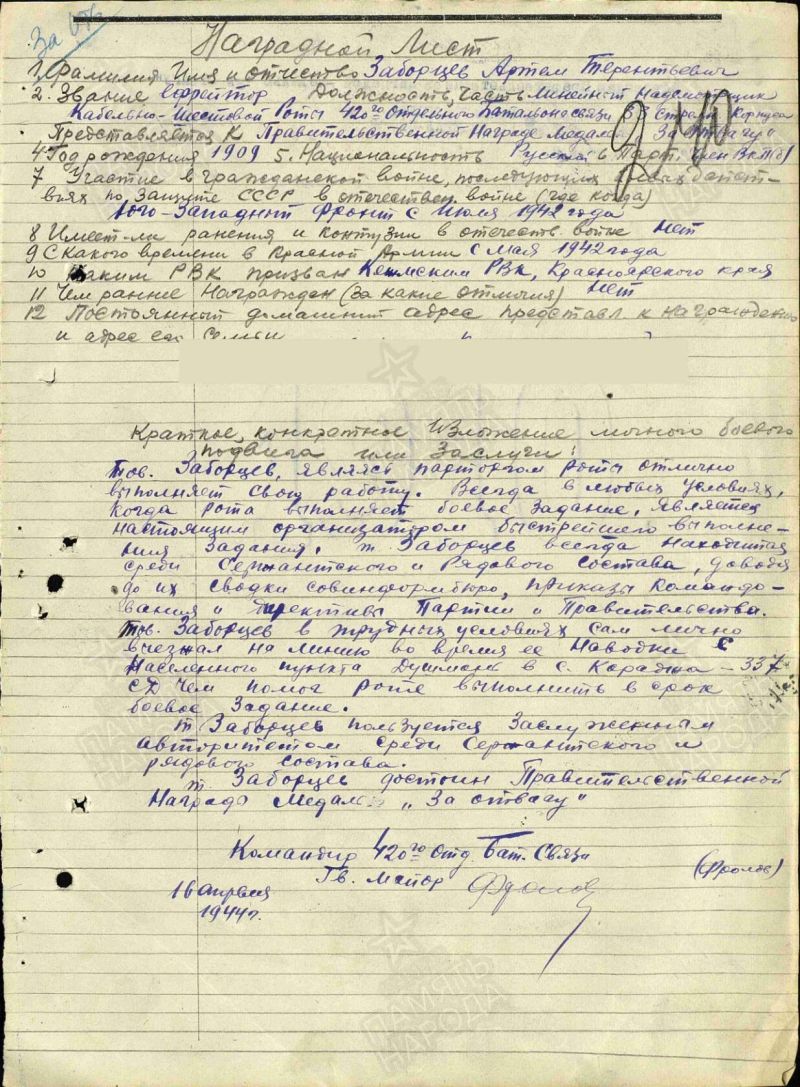 За
Наградной Лист
1. Фамилия Имя и отчество Заборцев Артем Терентьевич
2. Звание Ефрейтор Должность, часть Линейный Надсмотрщик
Кабельно-Шестовой Роты 420го Отдельного Батальона связи Стрелк Корпуса
Представляется к Правительственной Награде Медаль За отвагу"
4 Год рождения 1909 5. Национальность Русский 6 Парт. член ВКП(б)
7 Участие в гражданской войне, последующих боевых действ-
виях по защите СССР в отечествен. войне (где когда)
Юго-Западный Фронт с Июля 1942 года
8 Имеет-ли ранения и контузии в отечеств. войне Нет
9 С какого времени в Красной Армии с Мая 1942 года
10 Каким РВК призван Кежмским РВК, Красноярского края
11 Чем ранние награжден (за какие отличия) Нет
12 Постоянный домашний адрес представл к награждению
и адрес его семьи
Краткое, конкретное изложение личного боевого
подвига или заслуги:
тов. Заборцев, являясь парторгом роты отлично
выполняет свою работу. Всегда в любых условиях,
когда рота выполняет боевое задание, является
настоящим организатором быстрейшего выполне-
ния задания. т. Заборцев всегда находится
среди Сержантского и Рядового состава, доводя
до их сводки совинформбюро, приказы Командо-
вания и директивы Партии и Правительства.
тов. Заборцев в трудных условиях сам лично
выезжал на линию во время ее Наводки с
Населенного пункта Душманы в с. Кораджа - 337
СД Чем помог роте выполнить в срок
боевое задание.
т. Заборцев пользуется Заслуженным
авторитетом среди Сержантского и
рядового состава.
т. Заборцев достоин Правительственной
Награды Медаль „За отвагу"
Командир 420го Отд Бат. Связи
Гв. Майор (Фролов)
16 апреля
1944г.
ПАМЯТЬ
НАРОДА